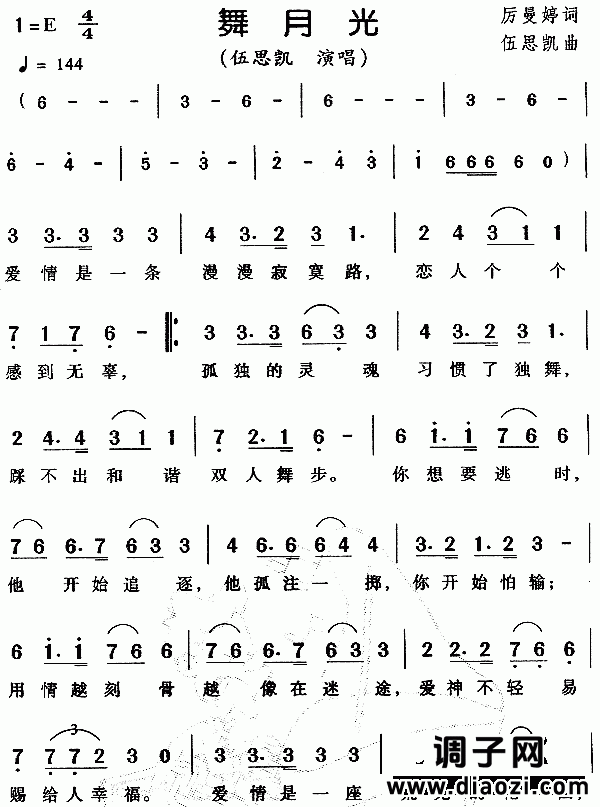 1=E 4/4 舞月光 厉曼婷词
♩=144 (伍思凯 演唱) 伍思凯曲
(6 - - - | 3 - 6 - | 6 - - - | 3 - 6 - |
6 - 4 - | 5 - 3 - | 2 - 4 3 | 1 666 6 0)
3 3. 3 3 3 | 4 3. 2 3 1. | 2 4 3 1 1
爱情是一条 漫漫寂寞路, 恋人个个
7 1 7 6 - |: 3 3. 3 6 3 3 | 4 3. 2 3 1.
感到无辜, 孤独的灵魂 习惯了独舞,
2 4. 4 3 1 1 | 7 2. 1 6 - | 6 1. 1 7 6 6
踩不出和谐 双人舞步。 你想要逃时,
7 6 6. 7 6 3 3 | 4 6. 6 6 4 4 | 3. 2 1. 2 3 -
他开始追逐, 他孤注一掷, 你开始怕输;
6 1. 1 7 6 6 | 7 6 6. 7 6 3 3 | 2 2. 2 7 6 6
用情越刻骨越 像在迷途, 爱神不轻易
3
7 7 7 2 3 0 | 3 3. 3 3 3
赐给人幸福。 爱情是一座
调子网
www.diaozi.com